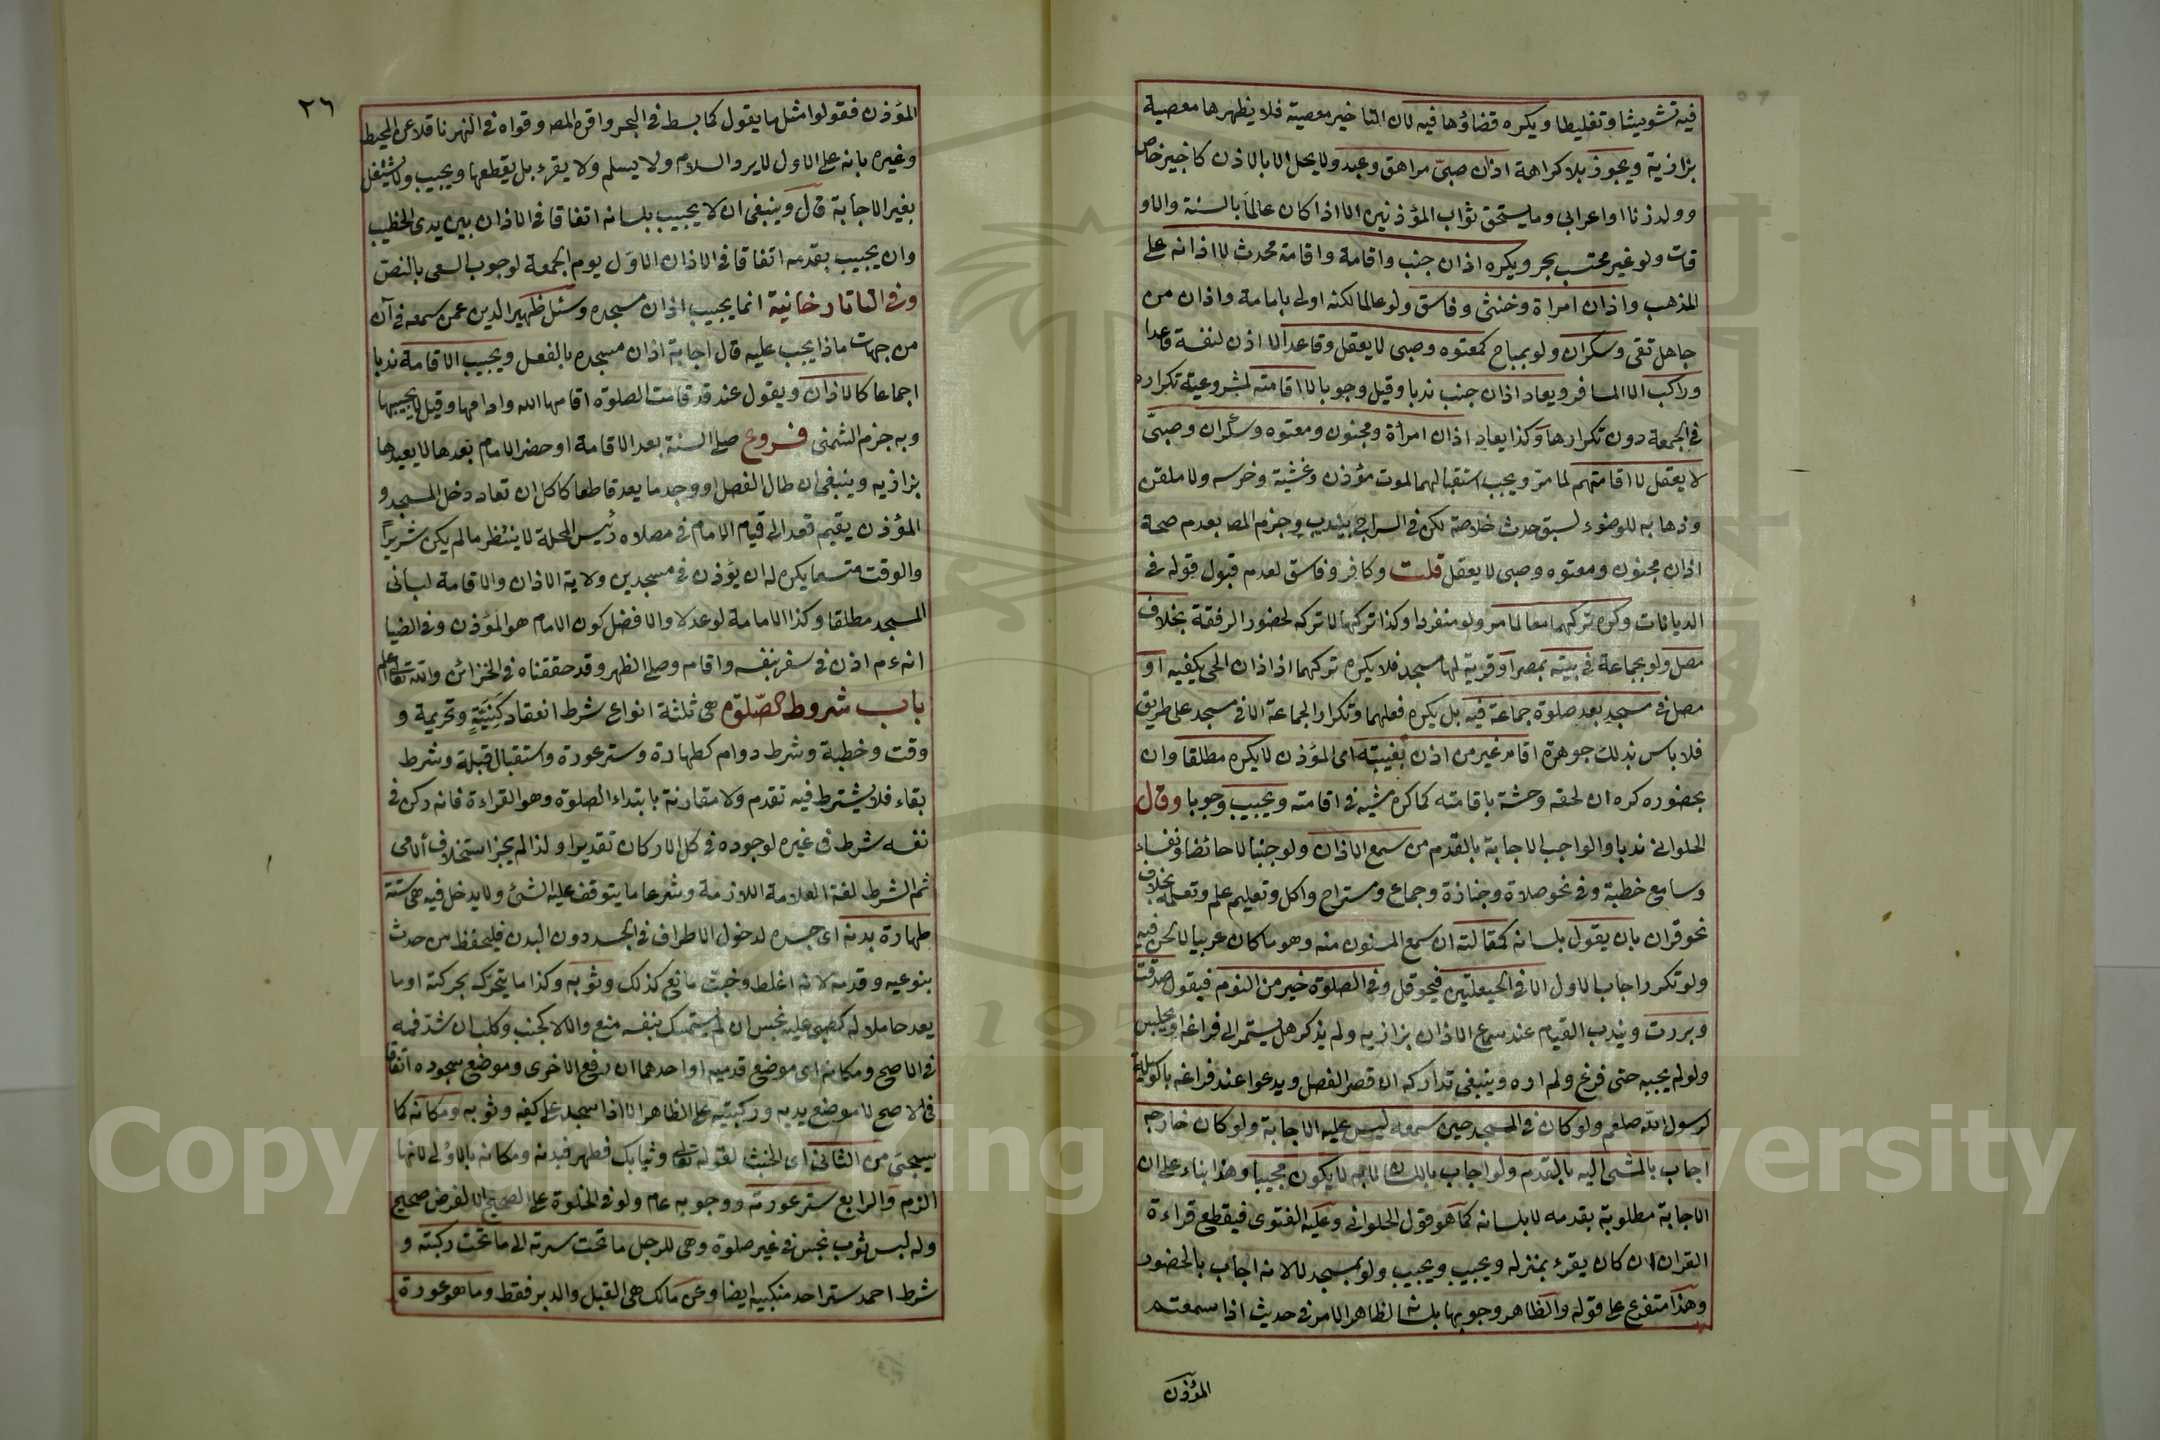 فيه تشويشا وتغليطا ويكره قضاؤها فيه لان التاخير معصية فلا يظهرها معصية
بزازية ويجوز بلا كراهة اذان صبى مراهق وعبد ولا يحل الا بالاذن كاجير خاص
وولد زنا واعرابى وما يستحق ثواب المؤذنين الا اذا كان عالما بالسنة والاو
قات ولو غير محتسب بحر ويكره اذان جنب واقامة واقامة محدث لا اذانه على
المذهب واذان امراة وخنثى وفاسق ولو عالما لكنه اولى بامامة واذان من
جاهل تقى وسكران ولو بمباح كمعتوه وصبى لا يعقل وقاعدا الا اذن لنفسه قاعدا
وراكب الا المسافر ويعاد اذان جنب ندبا وقيل وجوبا لا اقامته لمشروعية تكراره
فى الجمعة دون تكرارها وكذا يعاد اذان امرأة ومجنون ومعتوه وسكران وصبى
لا يعقل لا اقامتهم لما مر ويجب استقبالهما لموت مؤذن وغشية وخرسه ولا ملقن
وذهابه للوضوء لسبق حدث خلاصة لكن فى السراج يندب وجزم المص بعدم صحة
اذان مجنون ومعتوه وصبى لا يعقل قلت وكافر وفاسق لعدم قبول قوله فى
الديانات وكره تركهما معا لمسافر ولو منفردا وكذا تركها لا تركه لحضور الرفقة بخلاف
مصل ولو بجماعة فى بيته بمصر او قرية لها مسجد فلا يكره تركهما اذ اذان الحى يكفيه او
مصل فى مسجد بعد صلوة جماعة فيه بل يكره فعلهما وتكرار الجماعة الا فى مسجد على طريق
فلا باس بذلك جوهرة اقام غير من اذن بغيبته اى المؤذن لا يكره مطلقا وان
بحضوره كره ان لحقه وحشة باقامته كما كره مشيه فى اقامته ويجيب وجوبا وقال
الحلوانى ندبا والواجب الاجابة بالقدم من سمع الاذان ولو جنبا لا حائضا ونفساء
وسامع خطبة وفى نحو صلاة وجنازة وجماع ومستراح واكل وتعليم علم وتعلمه بخلاف
نحو قران بان يقول بلسانه كمقالته ان سمع المسنون منه وهو ما كان عربيا لا لحن فيه
ولو تكرر اجاب الاول الا فى الحيعلتين فيحوقل وفى الصلوة خير من النوم فيقول صدقت
وبررت ويندب القيام عند سماع الاذان بزازيه ولم يذكر هل يستمر الى فراغه او يجلس
ولو لم يجبه حتى فرغ ولم اره وينبغى تداركه ان قصر الفصل ويدعوا عند فراغه بالوسيلة
لرسول الله صلعم ولو كان فى المسجد حين سمعه ليس عليه الاجابة ولو كان خارجه
اجاب بالمشى اليه بالقدم ولو اجاب باللسان لا به لا يكون مجيبا وهذا بناء على ان
الاجابة مطلوبة بقدمه لا بلسانه كما هو قول الحلوانى وعليه الفتوى فيقطع قراءة
القران ان كان يقرء بمنزله ويجيب ويجيب ولو بمسجد لا لانه اجاب بالحضور
وهذا متفرع على قوله والظاهر وجوبها بلسانه لظاهر الامر فى حديث اذا سمعتم
المؤذن
٢٦
المؤذن فقولوا مثل ما يقول كما بسط فى البحر واقره المص وقواه فى النهر ناقلا عن المحيط
وغيره بانه على الاول لا يرد السلام ولا يسلم ولا يقرء بل يقطعها ويجيب ولا يشتغل
بغير الاجابة قال وينبغى ان لا يجيب بلسانه اتفاقا فى الاذان بين يدى الخطيب
وان يجيب بقدمه اتفاقا فى الاذان الاول يوم الجمعة لوجوب السعى بالنص
وفى التاتارخانية انما يجيب اذان مسجده وسئل ظهير الدين عمن سمعه فى آن
من جهات ماذا يجب عليه قال اجابة اذان مسجده بالفعل ويجيب الاقامة ندبا
اجماعا كالاذان ويقول عند قد قامت الصلوة اقامها الله وادامها وقيل لا يجيبها
وبه جزم الشمنى فروع صلى السنة بعد الاقامة او حضر الامام بعدها لا يعيدها
بزازيه وينبغى ان طال الفصل او وجد ما يعد قاطعا كاكل ان تعاد دخل المسجد و
المؤذن يقيم قعد الى قيام الامام فى مصلاه رئيس المحلة لا ينتظر ما لم يكن شريرا
والوقت متسعا يكره له ان يؤذن فى مسجدين ولاية الاذان والاقامة لبانى
المسجد مطلقا وكذا الامامة لو عدلا والافضل كون الامام هو المؤذن وفى الضيا
انه عم اذن فى سفر بنفسه واقام وصلى الظهر وقد حققناه فى الخزائن والله تعالى اعلم
باب شروط الصلوة هى ثلثة انواع شرط انعقاد كنية وتحريمة و
وقت وخطبة وشرط دوام كطهارة وستر عورة واستقبال قبلة وشرط
بقاء فلا يشترط فيه تقدم ولا مقارنة بابتداء الصلوة وهو القراءة فانه ركن فى
نفسه شرط فى غيره لوجوده فى كل الاركان تقديرا ولذا لم يجز استخلاف الامى
ثم الشرط لغة العلامة اللازمة وشرعا ما يتوقف عليه الشئ ولا يدخل فيه هى ستة
طهارة بدنه اى جسده لدخول الاطراف فى الجسد دون البدن فليحفظ من حدث
بنوعيه وقدمه لانه اغلظ وخبث مانع كذلك وثوبه وكذا ما يتحرك بحركته او ما
يعد حاملا له كصبى عليه نجس ان لم يستمسك بنفسه منع والا لا كجنب وكلب ان شد فمه
فى الاصح ومكانه اى موضع قدميه او احدهما ان رفع الاخرى وموضع سجوده اتفاقا
فى الاصح لا موضع يديه وركبتيه على الظاهر الا اذا سجد على كفه وثوبه ومكانه كما
سيجئ من الثانى اى الخبث لقوله تعالى وثيابك فطهر فبدنه ومكانه بالاولى لانها
الزم والرابع ستر عورته ووجوبه عام ولو فى الخلوة على الصحيح الا لغرض صحيح
وله لبس ثوب نجس فى غير صلوة وهى للرجل ما تحت سرته الى ما تحت ركبته و
شرط احمد ستر احد منكبيه ايضا وعن مالك هى القبل والدبر فقط وما هو عورة
Copyright © King Saud University
1957